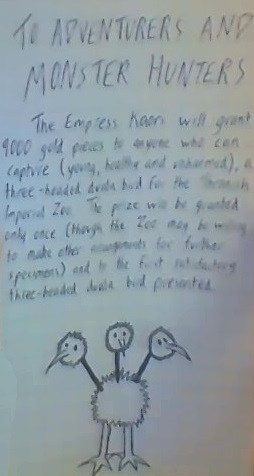 TO ADVENTURERS AND
MONSTER HUNTERS
The Empress Kaori will grant
9000 gold pieces to anyone who can
capture (young, healthy and unharmed), a
three-headed duda bird for the
Imperial Zoo. The prize will be granted
only once (though the Zoo may be willing
to make other arrangements for further
specimens) and to the first satisfactory
three-headed duda bird presented.